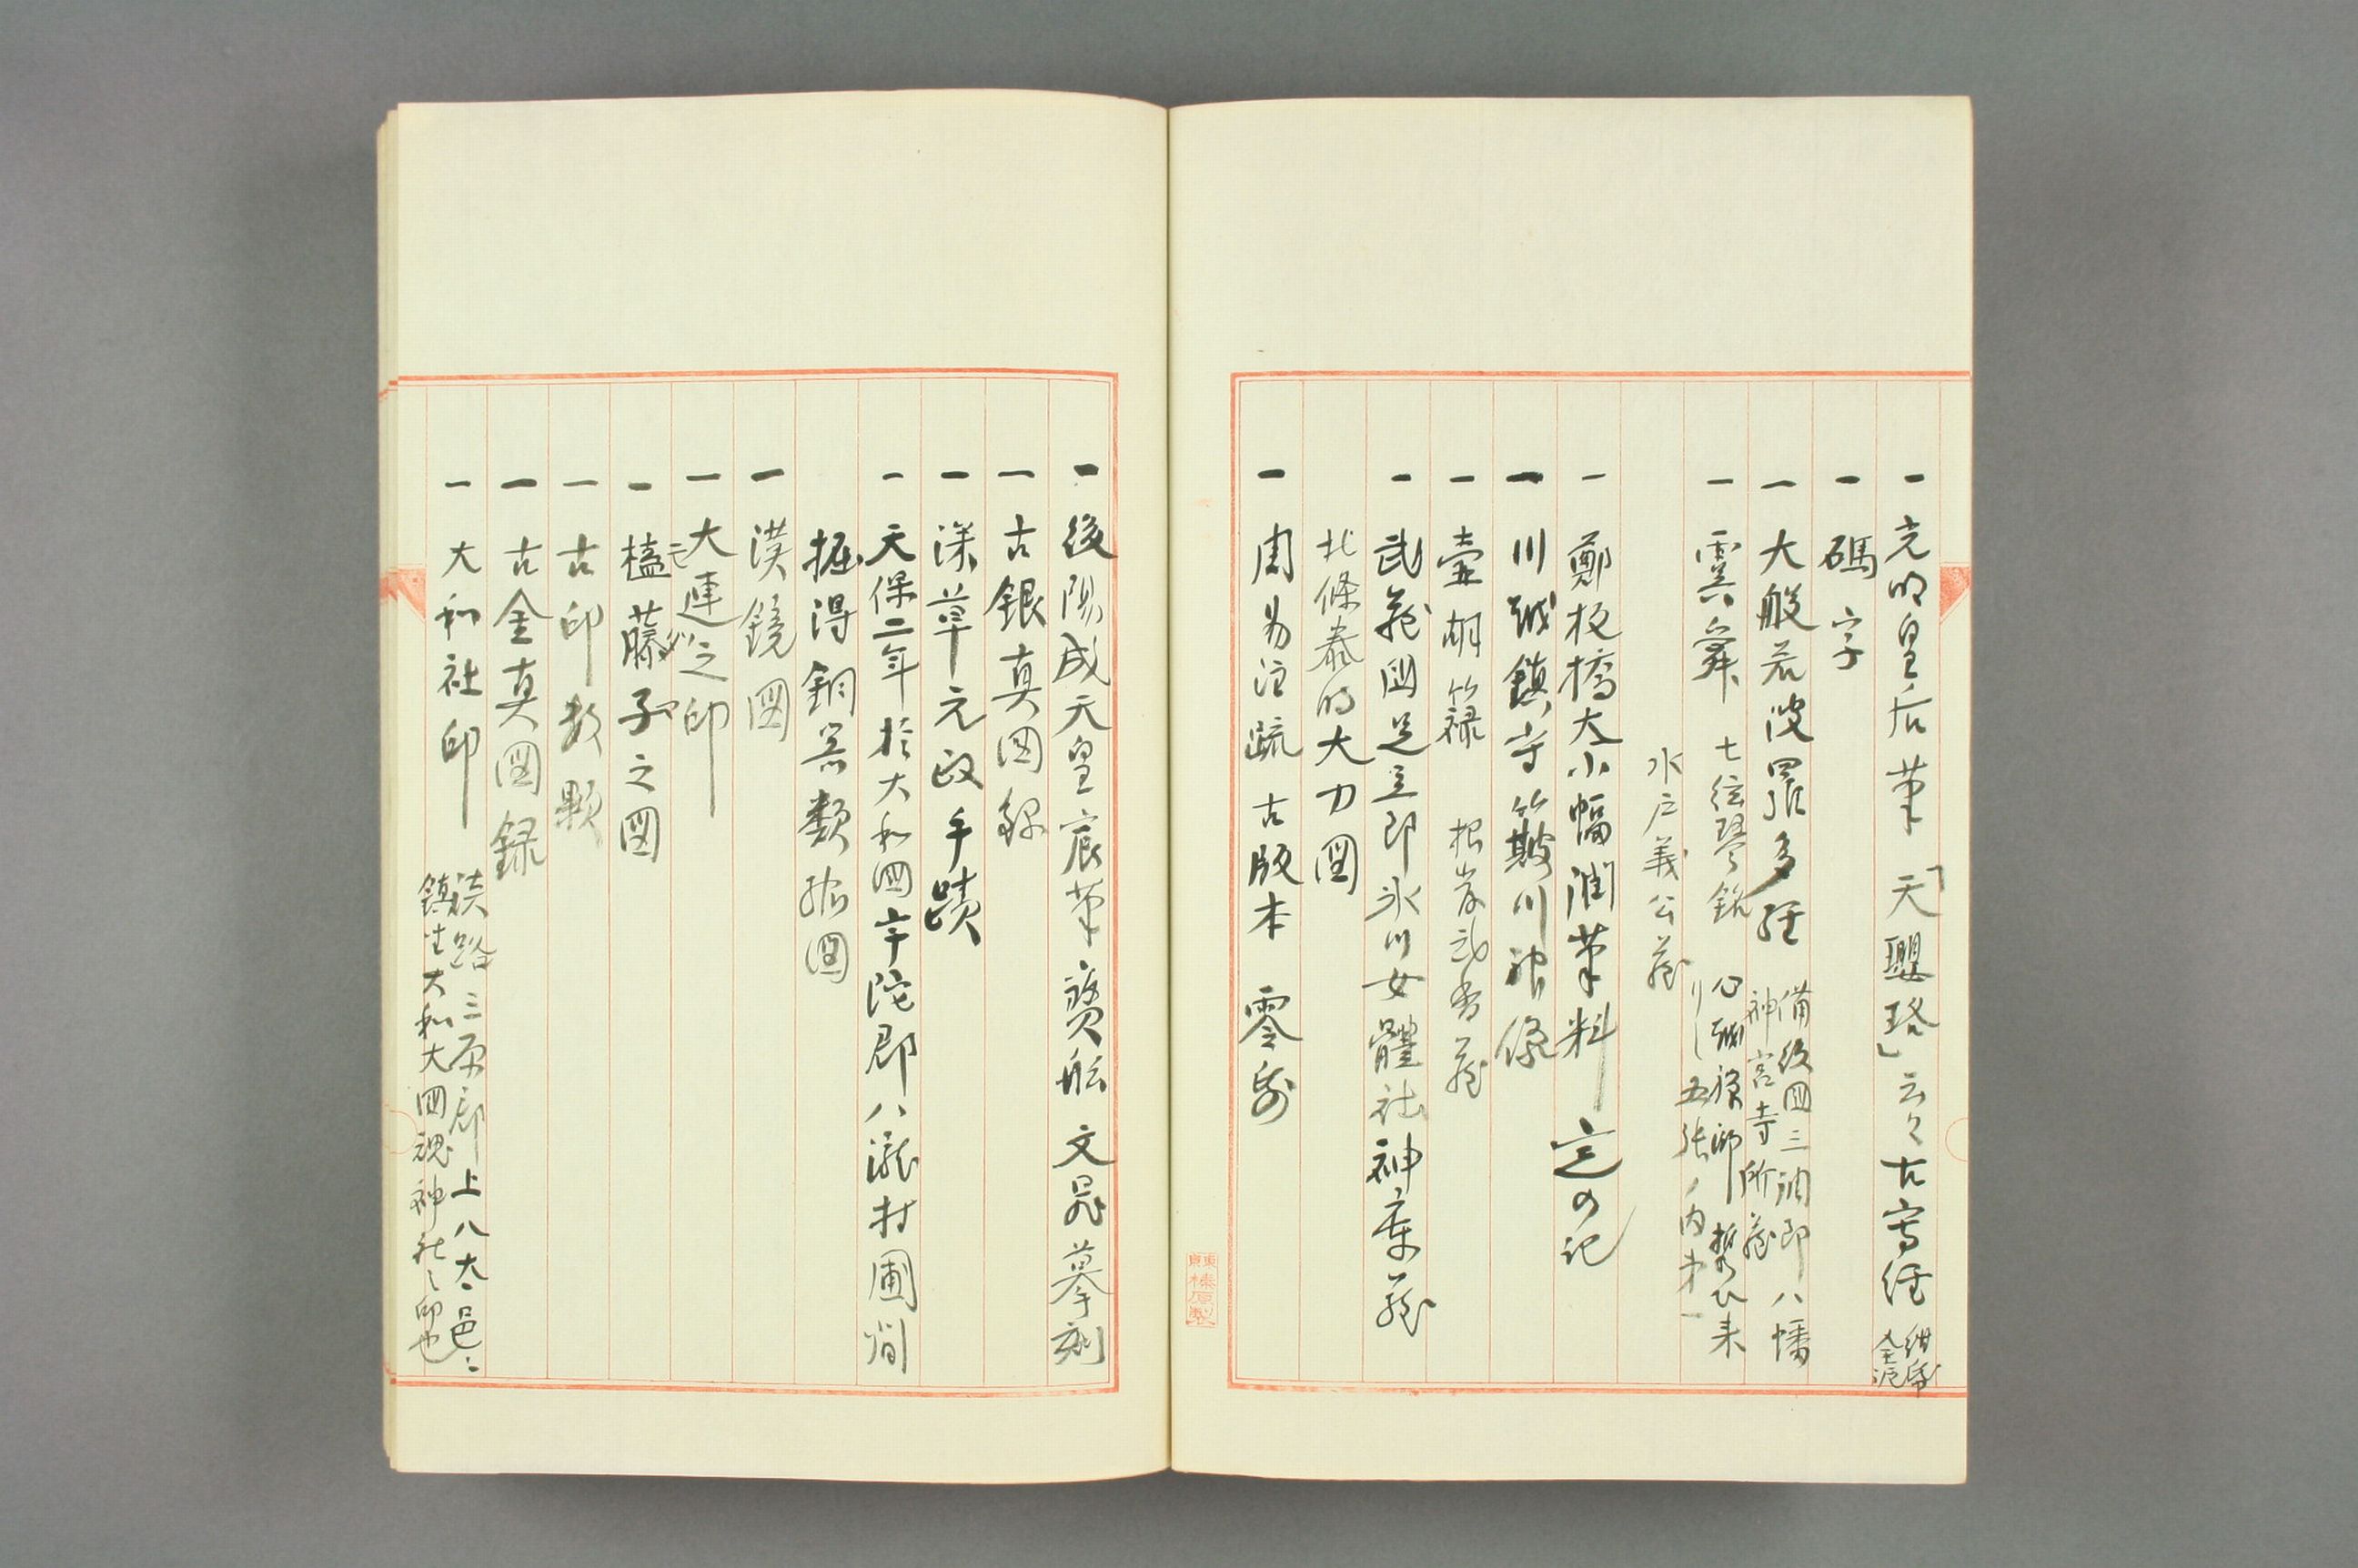 一 光明皇后筆「天瓔珞」云々古寫経 紺紙金泥
一 碼字
一 大般若波羅多経 備後国三調郡八幡神宮寺所蔵
一 虞舜 七絃琴銘 心越禅師携ひ来りし五張ノ内第一
水戸義公蔵
一 鄭板橋大小幅潤筆料定の記
一 川越鎮守簸川神像
一 壷胡簶 根岸武香蔵
一 武蔵國足立郡氷川女體社神庫蔵
北條泰時大刀圖
一 周易注疏 古版本 零葉
一 後陽成天皇宸筆寶船 文晁摹刻
一 古銀真図録
一 深草元政手蹟
一 天保二年於大和国宇陀郡八瀧村圃間
掘得銅器類拓圖
一 漢鏡圖
一 大連之印
一 榼藤子之図
一 古印数顆
一 古金真圖録
一 大和社印 淡路三原郡上八太邑ニ鎮坐大和大国魂神社之印也
東京榛原製